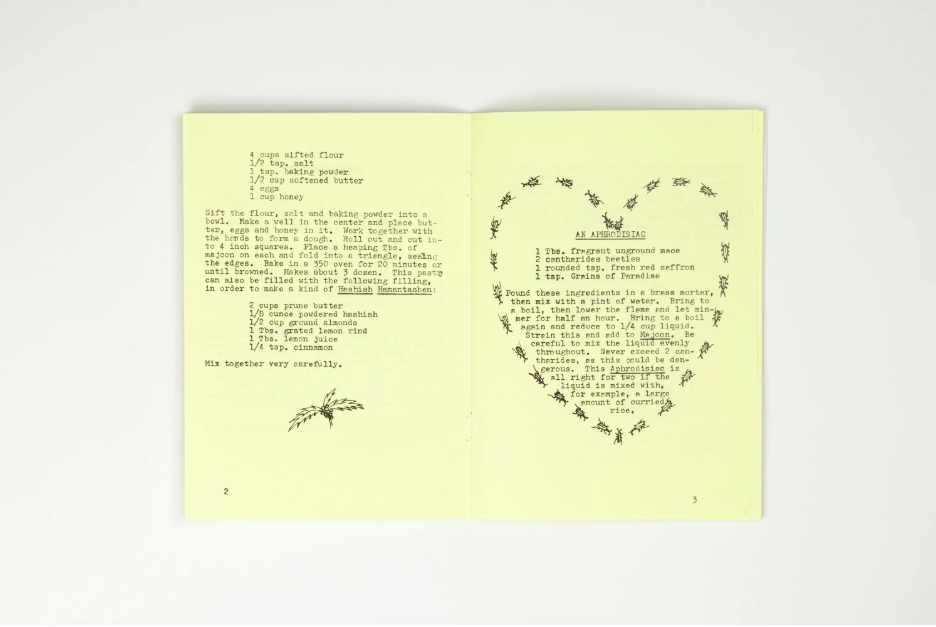 4 cups sifted flour
1/2 tsp. salt
1 tsp. baking powder
1/2 cup softened butter
4 eggs
1 cup honey
Sift the flour, salt and baking powder into a
bowl. Make a well in the center and place but-
ter, eggs and honey in it. Work together with
the hands to form a dough. Roll out and cut in-
to 4 inch squares. Place a heaping Tbs. of
majoon on each and fold into a triangle, sealing
the edges. Bake in a 350 oven for 20 minutes or
until browned. Makes about 3 dozen. This pastry
can also be filled with the following filling,
in order to make a kind of Hashish Hamantashen:
2 cups prune butter
1/8 ounce powdered hashish
1/2 cup ground almonds
1 Tbs. grated lemon rind
1 Tbs. lemon juice
1/4 tsp. cinnamon
Mix together very carefully.
2
AN APHRODISIAC
1 Tbs. fragrant unground mace
2 cantharides beetles
1 rounded tsp. fresh red saffron
1 tsp. Grains of Paradise
Pound these ingredients in a brass mortar,
then mix with a pint of water. Bring to
a boil, then lower the flame and let sim-
mer for half an hour. Bring to a boil
again and reduce to 1/4 cup liquid.
Strain this and add to Majoon. Be
careful to mix the liquid evenly
throughout. Never exceed 2 can-
tharides, as this could be dan-
gerous. This Aphrodisiac is
all right for two if the
liquid is mixed with,
for example, a large
amount of curried
rice.
3